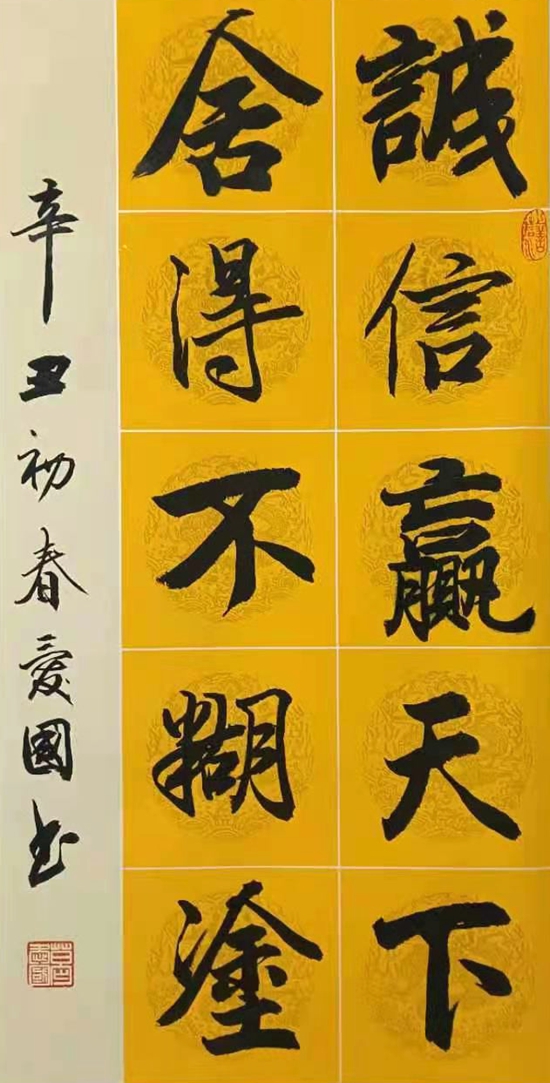 誠信贏天下
舍得不糊塗
辛丑初春愛國书